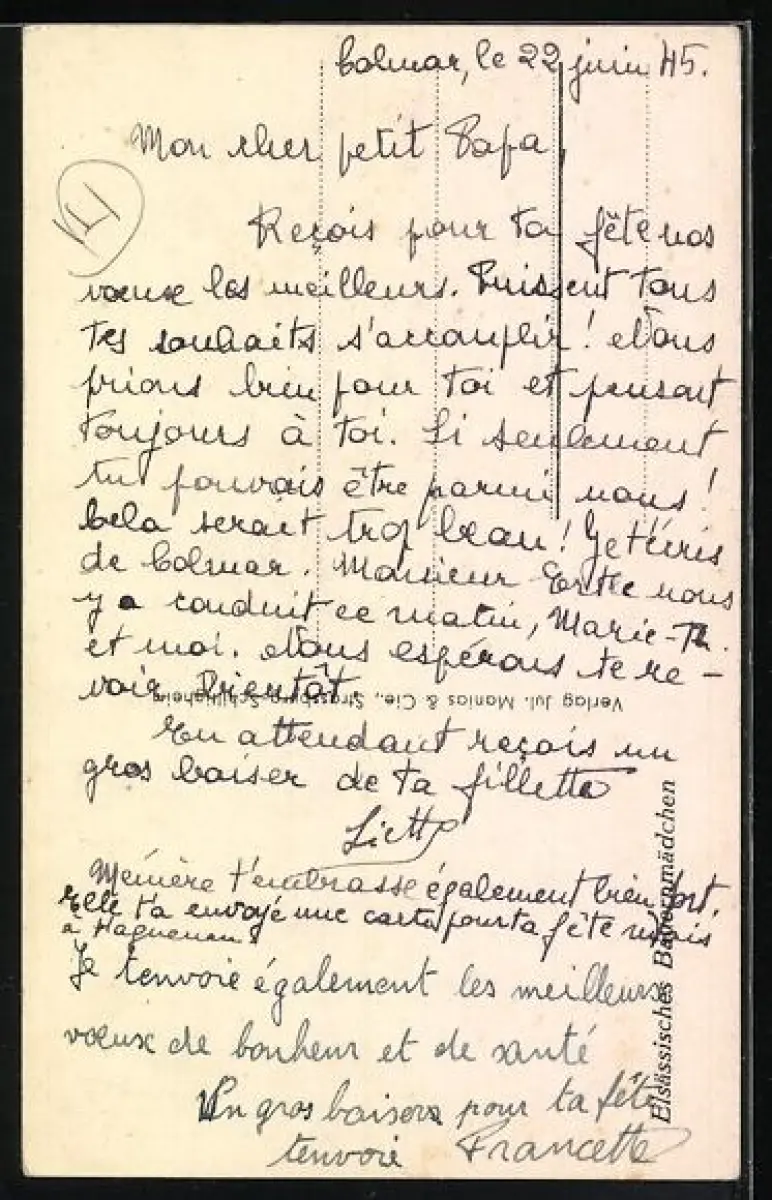 Colmar, le 22 juin 45.
Mon cher petit Papa,
Reçois pour ta fête nos
vœux les meilleurs. Puissent tous
tes souhaits s'accomplir! Nous
prions bien pour toi et pensont
toujours à toi. Si seulement
tu pouvais être parmi nous!
Cela serait trop beau! Je t'écris
de Colmar. Monsieur nous
y a conduit ce matin, Marie-Th.
et moi. Nous espérons te re-
voir bientôt.
Verlag Jul. Manias & Cie., Strassburg-Schiltigheim
En attendant reçois un
gros baiser de ta fillette
Liette
Mémère t'embrasse également bien fort.
Elle t'a envoyé une carte pour ta fête mais
à Haguenau.
Je tenvoie également les meilleurs
vœux de bonheur et de santé
Un gros baisers pour ta fête
tenvoie Francette
Elsässisches Bauernmädchen